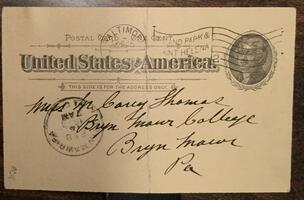 BALTIMORE
POSTAL CARD – ONE CENT.
United States of America.
THIS SIDE IS FOR THE ADDRESS ONLY.
Miss M. Carey Thomas
Bryn Mawr College
Bryn Mawr
Pa
7 AM